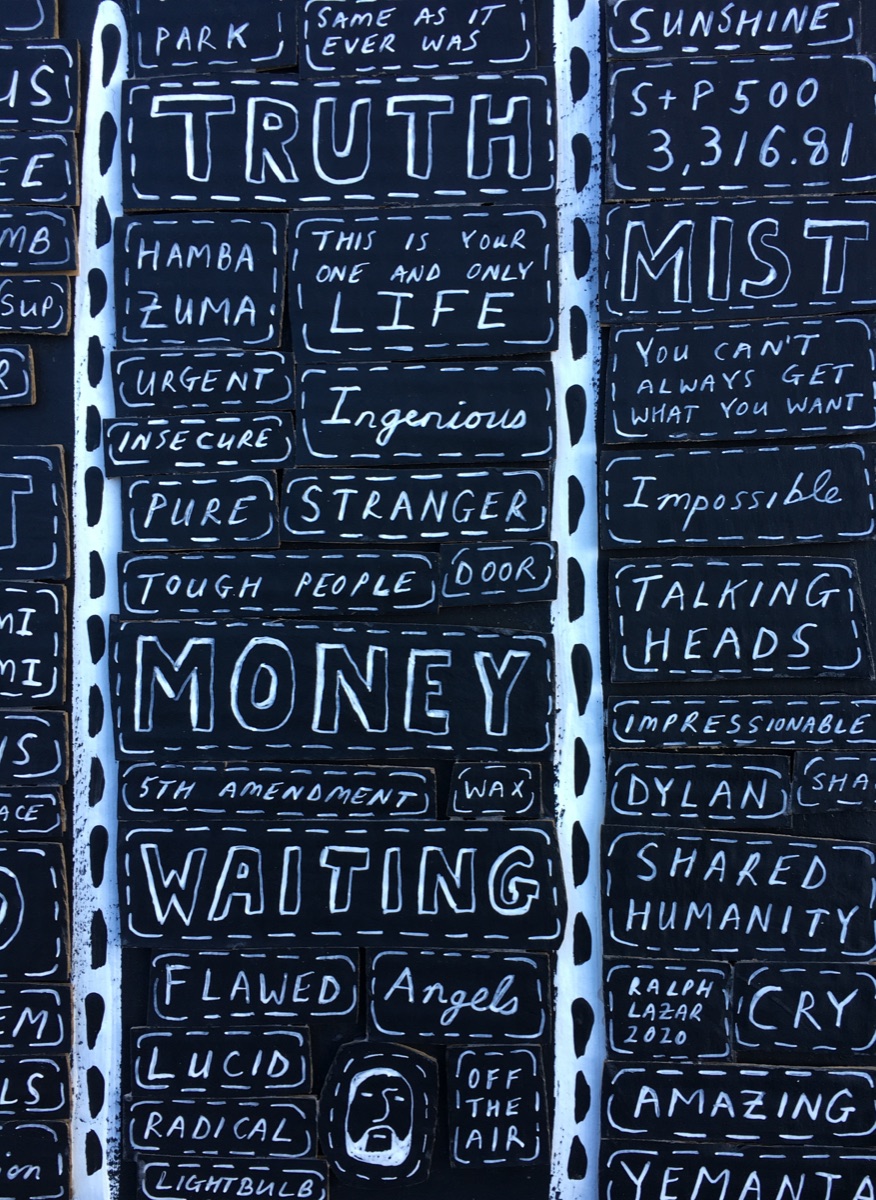 US
EE
MB
SUP
R
T
MI
MI
IS
ACE
EM
LS
ion
PARK
SAME AS IT
EVER WAS
TRUTH
HAMBA
ZUMA
THIS IS YOUR
ONE AND ONLY
LIFE
URGENT
INSECURE
Ingenious
PURE
STRANGER
TOUGH PEOPLE
DOOR
MONEY
5TH AMENDMENT
WAX
WAITING
FLAWED
Angels
LUCID
RADICAL
LIGHTBULB
OFF
THE
AIR
SUNSHINE
S+P 500
3,316.81
MIST
YOU CAN'T
ALWAYS GET
WHAT YOU WANT
Impossible
TALKING
HEADS
IMPRESSIONABLE
DYLAN
SHA
SHARED
HUMANITY
RALPH
LAZAR
2020
CRY
AMAZING
YEMANJA